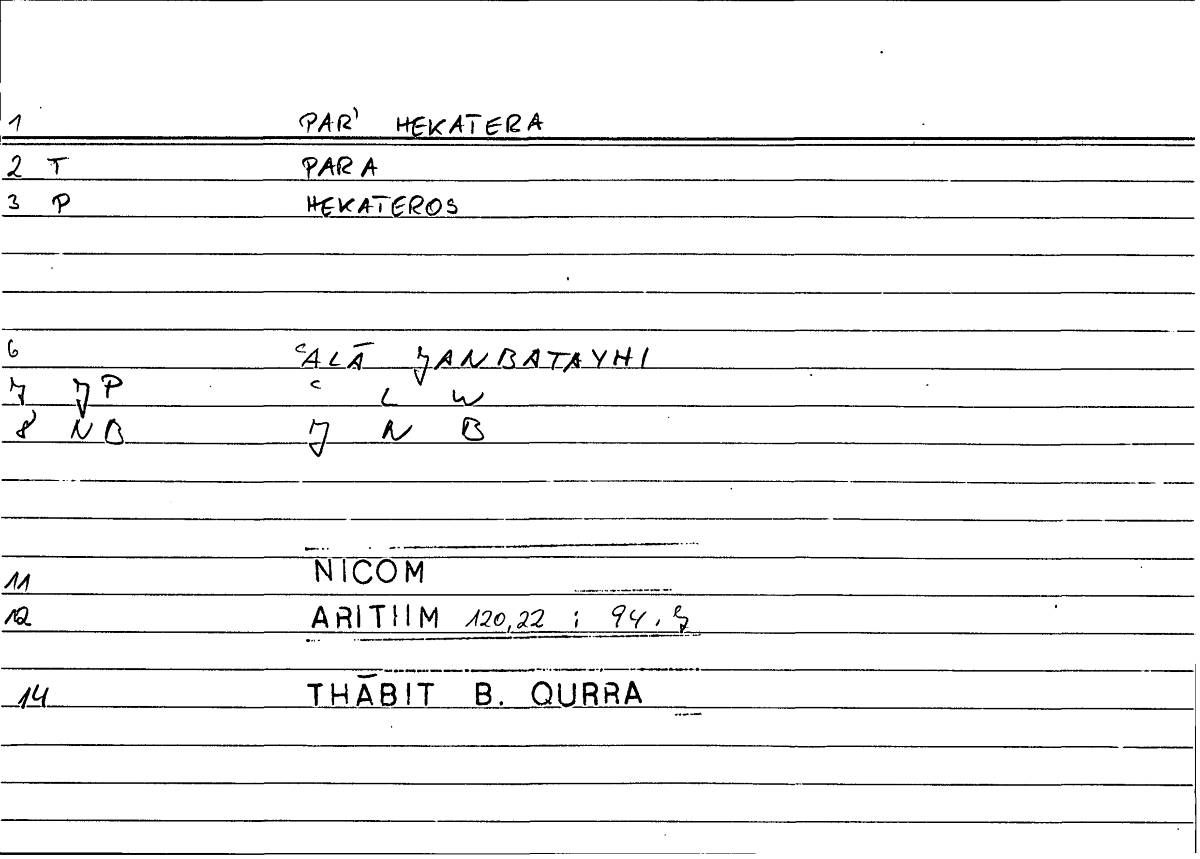 1 PAR' HEKATERA
2 T PARA
3 P HEKATEROS
6 ʿALĀ JANBATAYHI
7 JP ʿ L W
8 NB J N B
11 NICOM
12 ARITHM 120,22 ; 94.
14 THĀBIT B. QURRA